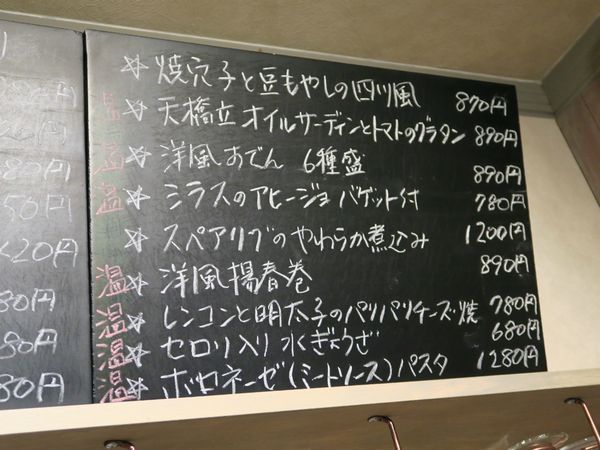 80円
50円
20円
80円
80円
80円
☆ 焼穴子と豆もやしの四川風 870円
温☆ 天橋立オイルサーディンとトマトのグラタン 890円
温☆ 洋風おでん 6種盛 890円
温☆ シラスのアヒージョ バゲット付 780円
☆ スペアリブのやわらか煮込み 1200円
温☆ 洋風揚春巻 890円
温☆ レンコンと明太子のパリパリチーズ焼 780円
温☆ セロリ入り水ぎょうざ 680円
温☆ ボロネーゼ(ミートソース)パスタ 1280円